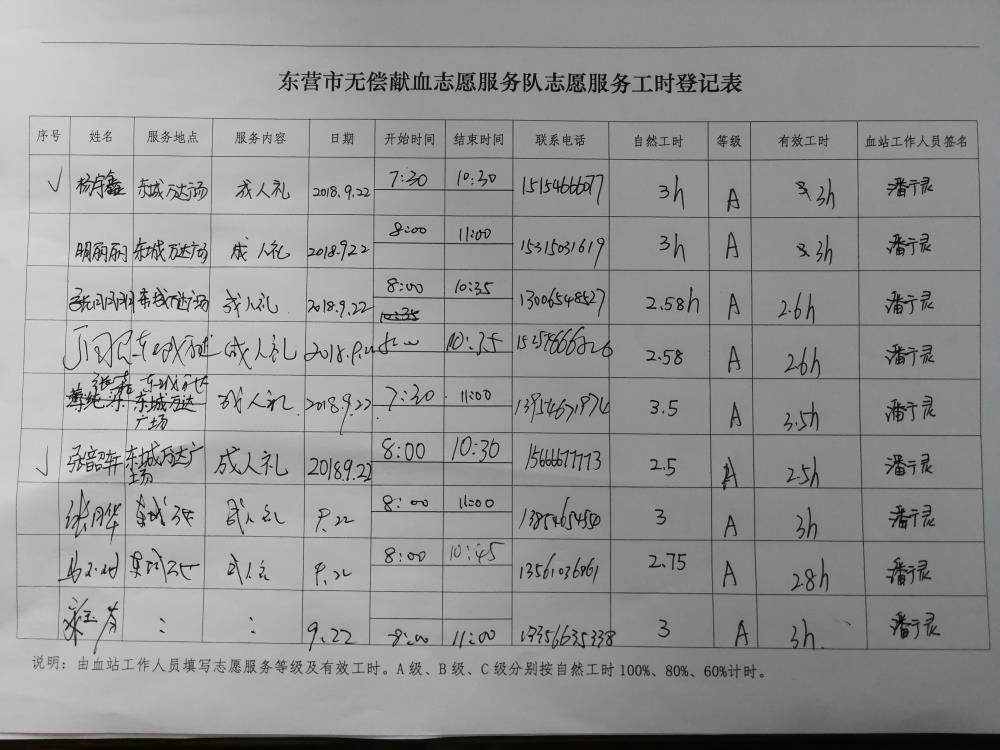 东营市无偿献血志愿服务队志愿服务工时登记表
序号 姓名 服务地点 服务内容 日期 开始时间 结束时间 联系电话 自然工时 等级 有效工时 血站工作人员签名
√ 杨宇鑫 东城万达广场 成人礼 2018.9.22 7:30 10:30 15154666077 3h A 3h
明丽丽 东城万达广场 成人礼 2018.9.22 8:00 11:00 15315031619 3h A 3h
东城万达广场 成人礼 2018.9.22 8:00 10:35 13006548527 2.58h A 2.6h
10:35
成人礼 2018.9.22 8:00 10:35 2.58 A 2.6h
东城万达
广场 成人礼 2018.9.22 7:30 11:00 3.5 A 3.5h
√ 张韶轩 东城万达广
场 成人礼 2018.9.22 8:00 10:30 15666677773 2.5 A 2.5h
张月华 东城万达 成人礼 9.22 8:00 11:00 13854654550 3 A 3h
东城万达 成人礼 9.22 8:00 10:45 2.75 A 2.8h
: : 9.22 8:00 11:00 3 A 3h
说明：由血站工作人员填写志愿服务等级及有效工时。A级、B级、C级分别按自然工时100%、80%、60%计时。